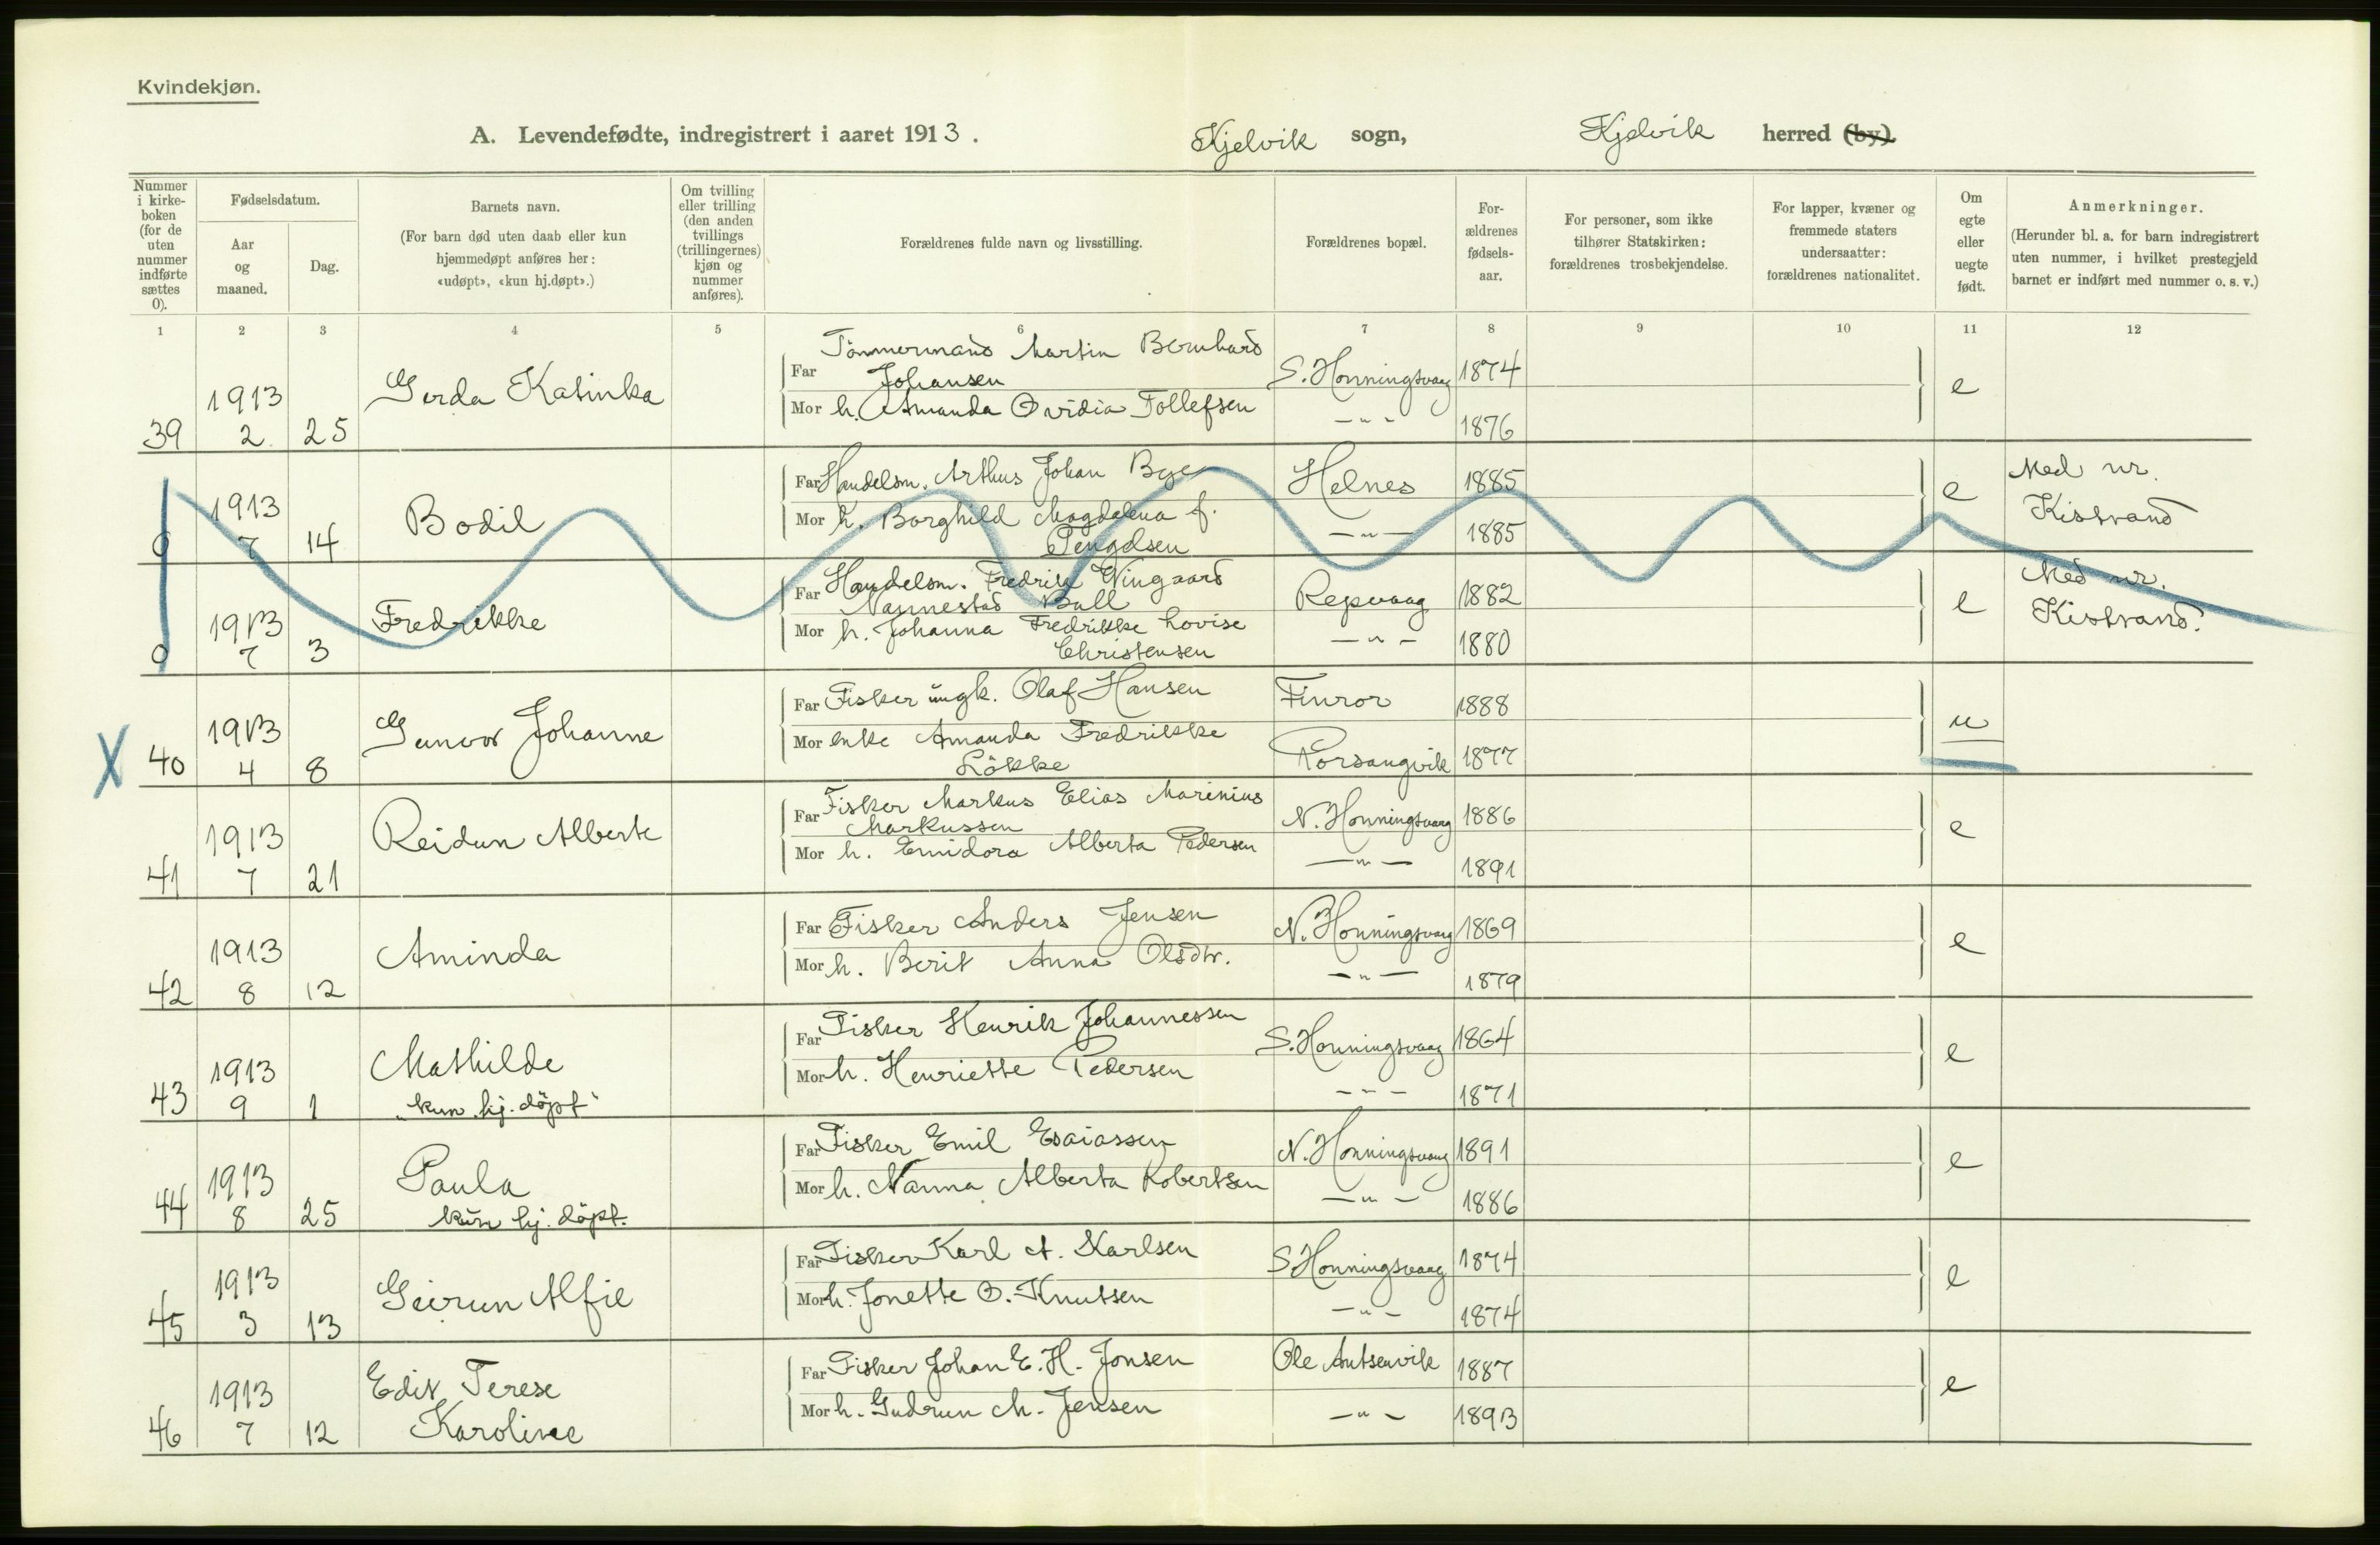 Kvindekjøn.
A. Levendefødte, indregistrert i aaret 1913. Kjelvik sogn, Kjelvik herred (by).
Nummer i kirke-boken (for de uten nummer indførte sættes 0).
Fødselsdatum.
Aar og maaned.
Dag.
Barnets navn.
(For barn død uten daab eller kun hjemmedøpt anføres her: «udøpt», «kun hj.døpt».)
Om tvilling eller trilling (den anden tvillings (trillingernes) kjøn og nummer anføres).
Forældrenes fulde navn og livsstilling.
Forældrenes bopæl.
For-ældrenes fødsels-aar.
For personer, som ikke tilhører Statskirken: forældrenes trosbekjendelse.
For lapper, kvæner og fremmede staters undersaatter: forældrenes nationalitet.
Om egte eller uegte født.
Anmerkninger.
(Herunder bl. a. for barn indregistrert uten nummer, i hvilket prestegjeld barnet er indført med nummer o. s. v.)
1 2 3 4 5 6 7 8 9 10 11 12
39 1913 2 25 Gerda Katinka
Far Tömmermand Martin Bernhard Johansen S. Honningsvaag 1874 e
Mor h. Amanda Ovidia Tollefsen -"- 1876
0 1913 7 14 Bodil
Far Handelsm. Arthus Johan Bye Helnes 1885 e Med nr. Kistrand
Mor h. Borghild Magdalena f. Pengdsen -"- 1885
0 1913 7 3 Fredrikke
Far Handelsm. Fredrik Wingaard Nannestad Bull Repvaag 1882 e Med nr. Kistrand.
Mor h. Johanna Fredrikke Lovise Christensen -"- 1880
40 1913 4 8 Gunvor Johanne
Far Fisker ungk. Olaf Hansen Finror 1888 u
Mor enke Amanda Fredrikke Lökke Porsangvik 1877
41 1913 7 21 Reidun Alberte
Far Fisker Markus Elias Marinius Markussen N. Honningsvaag 1886 e
Mor h. Emidora Alberta Pedersen -"- 1891
42 1913 8 12 Aminda
Far Fisker Anders Jensen N. Honningsvaag 1869 e
Mor h. Berit Anna Olsdtr. -"- 1879
43 1913 9 1 Mathilde
"kun hj. döpt"
Far Fisker Henrik Johannessen S. Honningsvaag 1864 e
Mor h. Henriette Pedersen -"- 1871
44 1913 8 25 Paula
kun hj. döpt.
Far Fisker Emil Esaiassen N. Honningsvaag 1891 e
Mor h. Nanna Alberta Robertsen -"- 1886
45 1913 3 13 Geirun Alfie
Far Fisker Karl A. Karlsen S Honningsvaag 1874 e
Mor h. Jonette O. Knutsen -"- 1874
46 1913 7 12 Edit Terese Karoline
Far Fisker Johan E. H. Jonsen Ole Antsenvik 1887 e
Mor h. Gudrun M. Jensen -"- 1893